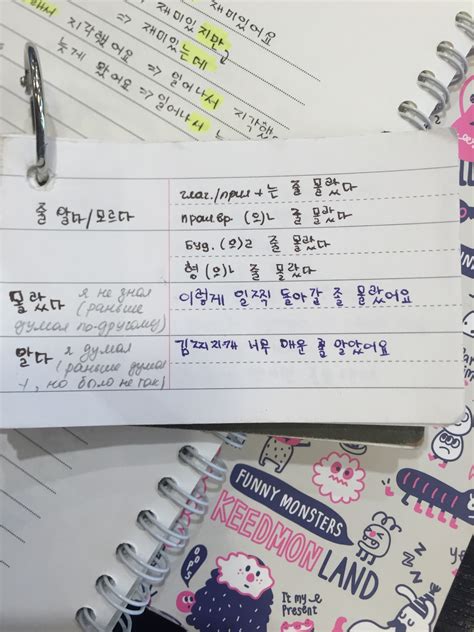 재미있어요
재미있지만
해서 지각했어요 => 재미있는데
늦게 왔어요 => 일어나서 지각했
=> 일어나서 늦
줄 알다/모르다
глаг./прил + 는 줄 몰랐다
прош.вр. (으)ㄴ 줄 몰랐다
буд. (으)ㄹ 줄 몰랐다
형 (으)ㄴ 줄 몰랐다
몰랐다 я не знал
(раньше
думал по-другому)
이렇게 일찍 돌아갈 줄 몰랐어요
알다 я думал
(раньше думал
-л, но было не так)
김치찌개 너무 매운 줄 알았어요
FUNNY MONSTERS
KEEDMON
LAND
OOPS
It my
Present